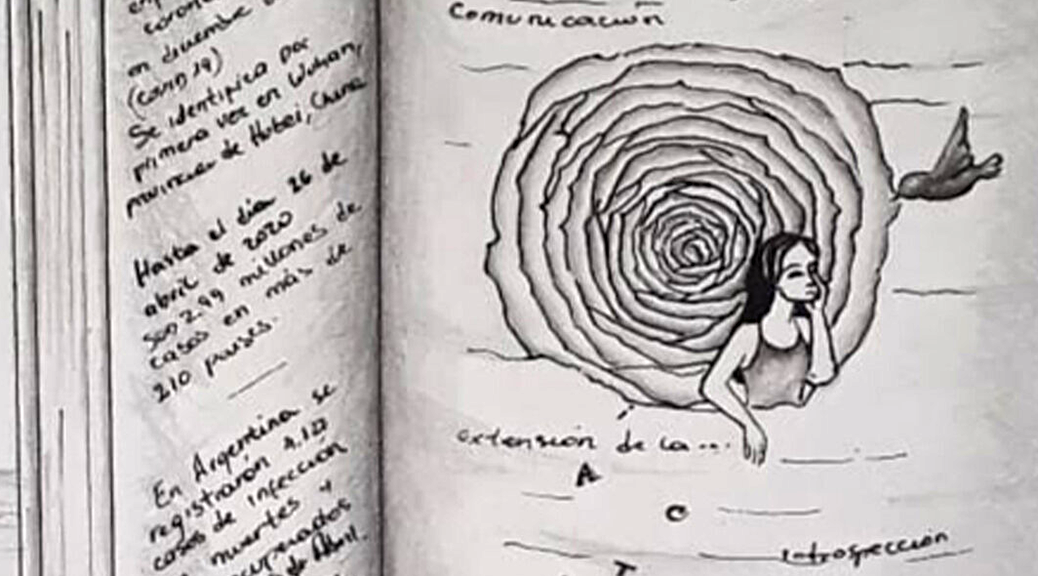 en diciembre
(covid 19)
Se identifica por
primera vez en Wuhan,
provincia de Hubei, China
Hasta el día 26 de
abril de 2020
son 2.99 millones de
casos en más de
210 países.
En Argentina se
registraron 4.127
casos de infección
muertes y
de Abril.
Comunicación
extensión de la...
A
C
T
introspección